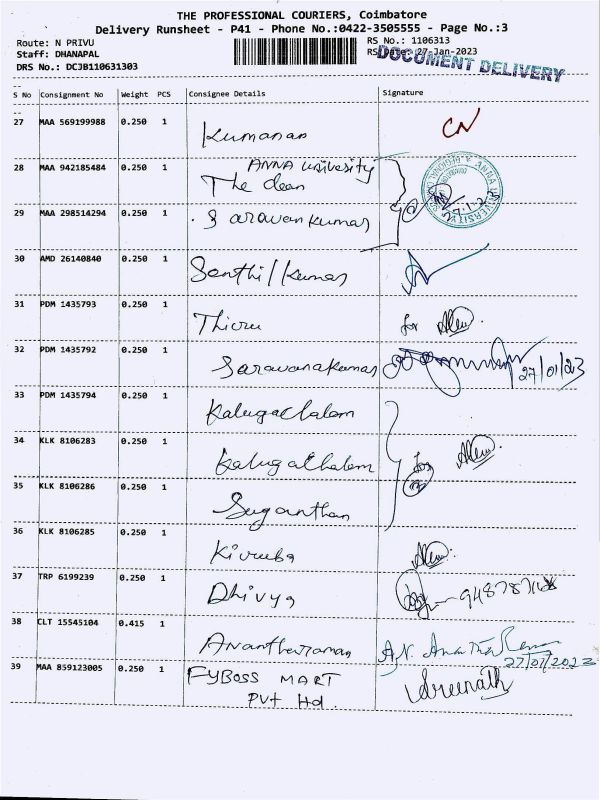 THE PROFESSIONAL COURIERS, Coimbatore
Delivery Runsheet - P41 - Phone No.:0422-3505555 - Page No.:3
Route: N PRIVU
RS No.: 1106313
Staff: DHANAPAL
RS Date: 27-Jan-2023
DRS No.: DCJB110631303
DOCUMENT DELIVERY
S No Consignment No Weight PCS Consignee Details Signature
27 MAA 569199988 0.250 1 Kumanan CN
28 MAA 942185484 0.250 1 ANNA University
The dean
29 MAA 298514294 0.250 1 Saravankumar
30 AMD 26140840 0.250 1 Senthilkumar
31 PDM 1435793 0.250 1 Thiru for
32 PDM 1435792 0.250 1 Saravanakumar 27/01/23
33 PDM 1435794 0.250 1 Kalugachalam
34 KLK 8106283 0.250 1 Kalugachalam for
35 KLK 8106286 0.250 1 Suganthan
36 KLK 8106285 0.250 1 Kiruba
37 TRP 6199239 0.250 1 Dhivya
38 CLT 15545104 0.415 1 Anantharaman
27/01/2023
39 MAA 859123005 0.250 1 FYBOSS MART Sreenath
Pvt